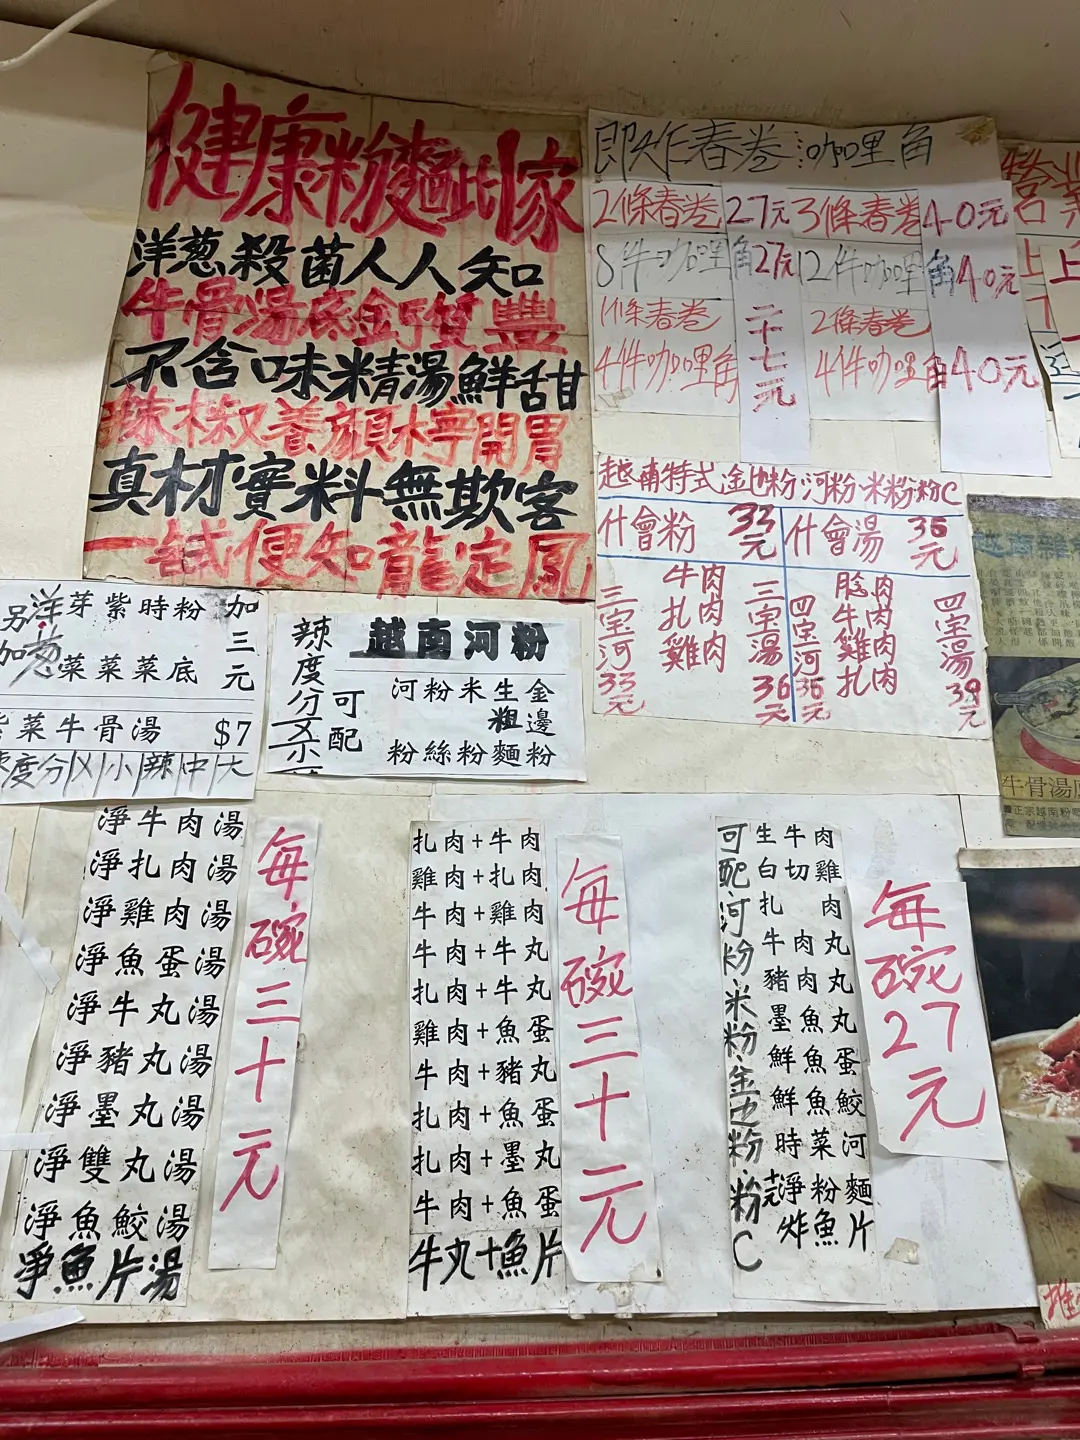 健康粉麵此家
洋葱殺菌人人知
牛骨湯底鈣質豐
不含味精湯鮮甜
辣椒養顏檸開胃
真材實料無欺客
一試便知龍定鳳
即炸春卷咖喱角
2條春卷27元3條春卷40元
8件咖喱角27元12件咖喱角40元
1條春卷
4件咖喱角
二十七元
2條春卷
4件咖喱角40元
營業
上
上
越南特式金边粉河粉米粉粉C
什會粉33元
什會湯35元
三宝河33元
牛肉
扎肉
雞肉
三宝湯36元
四宝河36元
腍肉
牛肉
雞肉
扎肉
四宝湯39元
另加
洋葱
芽菜
紫菜
時菜
粉底
加三元
紫菜牛骨湯 $7
辣度分X小辣中大
越南河粉
辣度分
可配
河粉
粉絲
米粉
生麵
粗
金邊粉
淨牛肉湯
淨扎肉湯
淨雞肉湯
淨魚蛋湯
淨牛丸湯
淨豬丸湯
淨墨丸湯
淨雙丸湯
淨魚鮫湯
淨魚片湯
每碗三十元
扎肉+牛肉
雞肉+扎肉
牛肉+雞肉
牛肉+牛丸
扎肉+牛丸
雞肉+魚蛋
牛肉+豬丸
扎肉+魚蛋
扎肉+墨丸
牛肉+魚蛋
牛丸+魚片
每碗三十元
可配河粉米粉金边粉粉C
生牛肉
白切雞
扎肉
牛肉丸
豬肉丸
墨魚丸
鮮魚蛋
鮮魚鮫
時菜河
淨粉麵
炸魚片
每碗27元
越南雜
牛骨湯
推